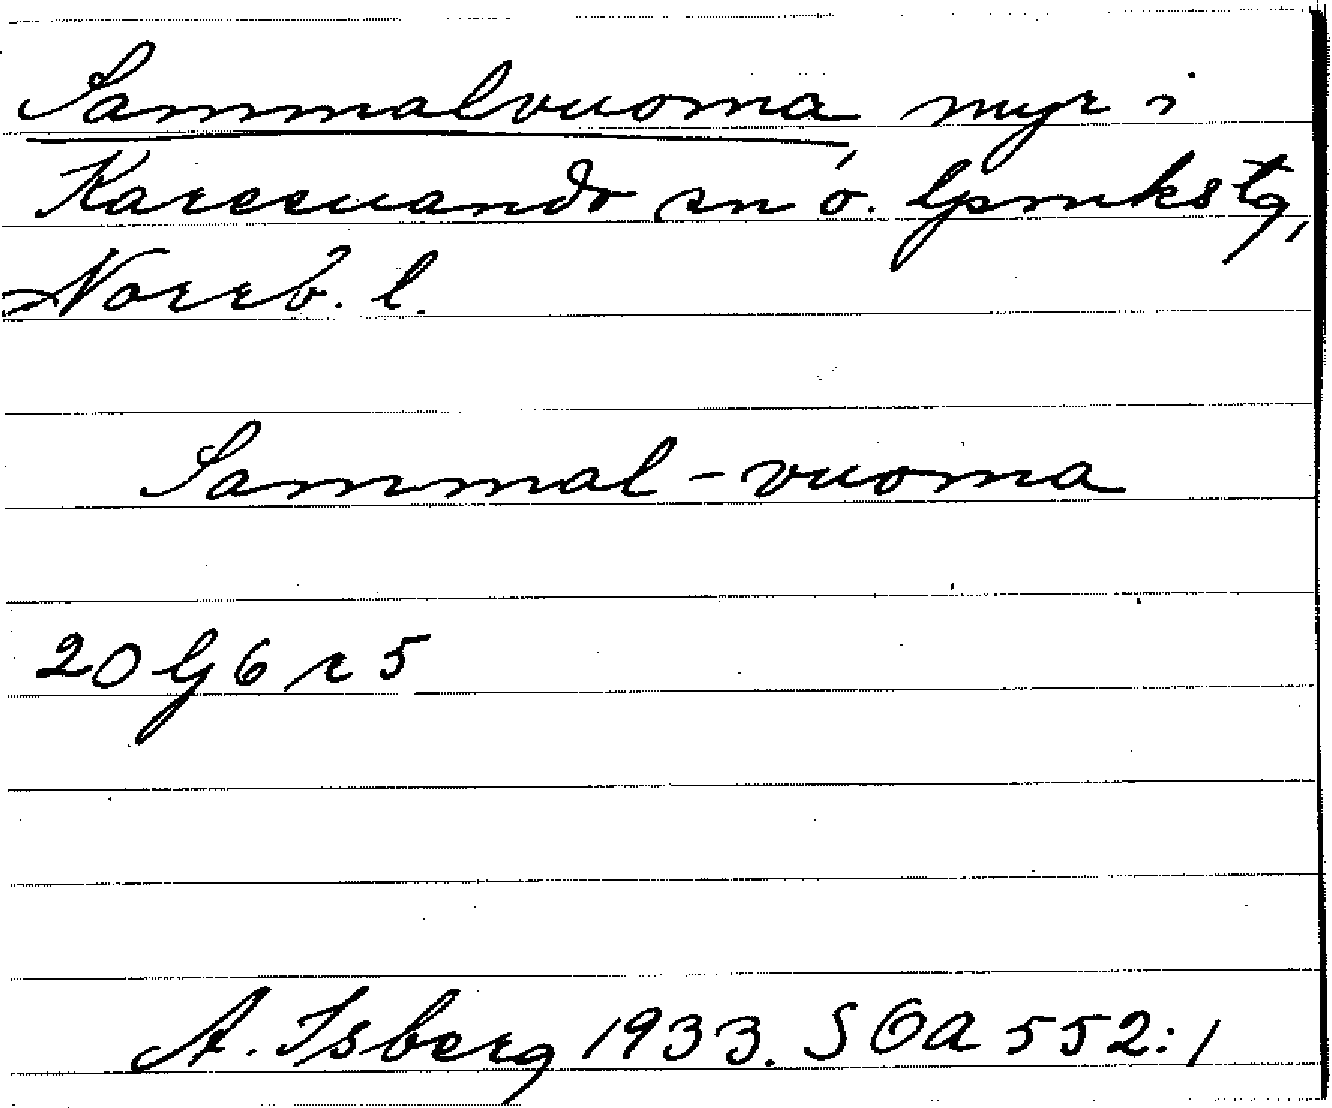 Sammalvuoma, myr i
Karesuando sn o. Gpmkstg,
Norrb. l.
Sammal-vuoma
20 G 6 r 5
A. Isberg 1933. SOA 552:1